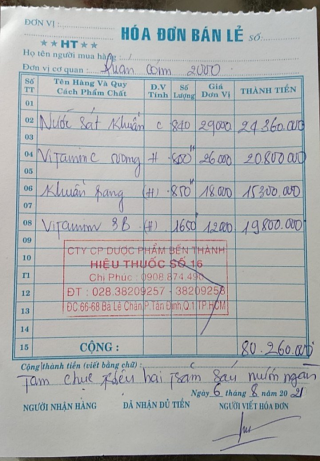 ĐƠN VỊ :
★★ HT ★★
HÓA ĐƠN BÁN LẺ SỐ
Họ tên người mua hàng
Đơn vị cơ quan : Quán Cơm 2000
Số TT Tên Hàng Và Quy Cách Phẩm Chất Đ.V Tính Số Lượng Giá Đơn Vị THÀNH TIỀN
01
02 Nước Sát Khuẩn C 840 29000 24.360.000
03
04 Vitamin C sương H 800 26000 20.800.000
05
06 Khuẩn Trang (H) 850 18.000 15.300.000
07
08 Vitamin 3B (H) 1650 12000 19.800.000
09
10
11
12
13
14
CTY CP DƯỢC PHẨM BẾN THÀNH
HIỆU THUỐC SỐ 16
Chị Phúc : 0908.874.490
ĐT : 028.38209257 - 38209258
ĐC:66-68 Bà Lê Chân P.Tân Định,Q.1 TP.HCM
15 CỘNG : 80.260.000
Cộng thành tiền (viết bằng chữ) :
Tám chục triệu hai trăm sáu mươi ngàn
Ngày 6 tháng 8 năm 2021
NGƯỜI NHẬN HÀNG ĐÃ NHẬN ĐỦ TIỀN NGƯỜI VIẾT HÓA ĐƠN